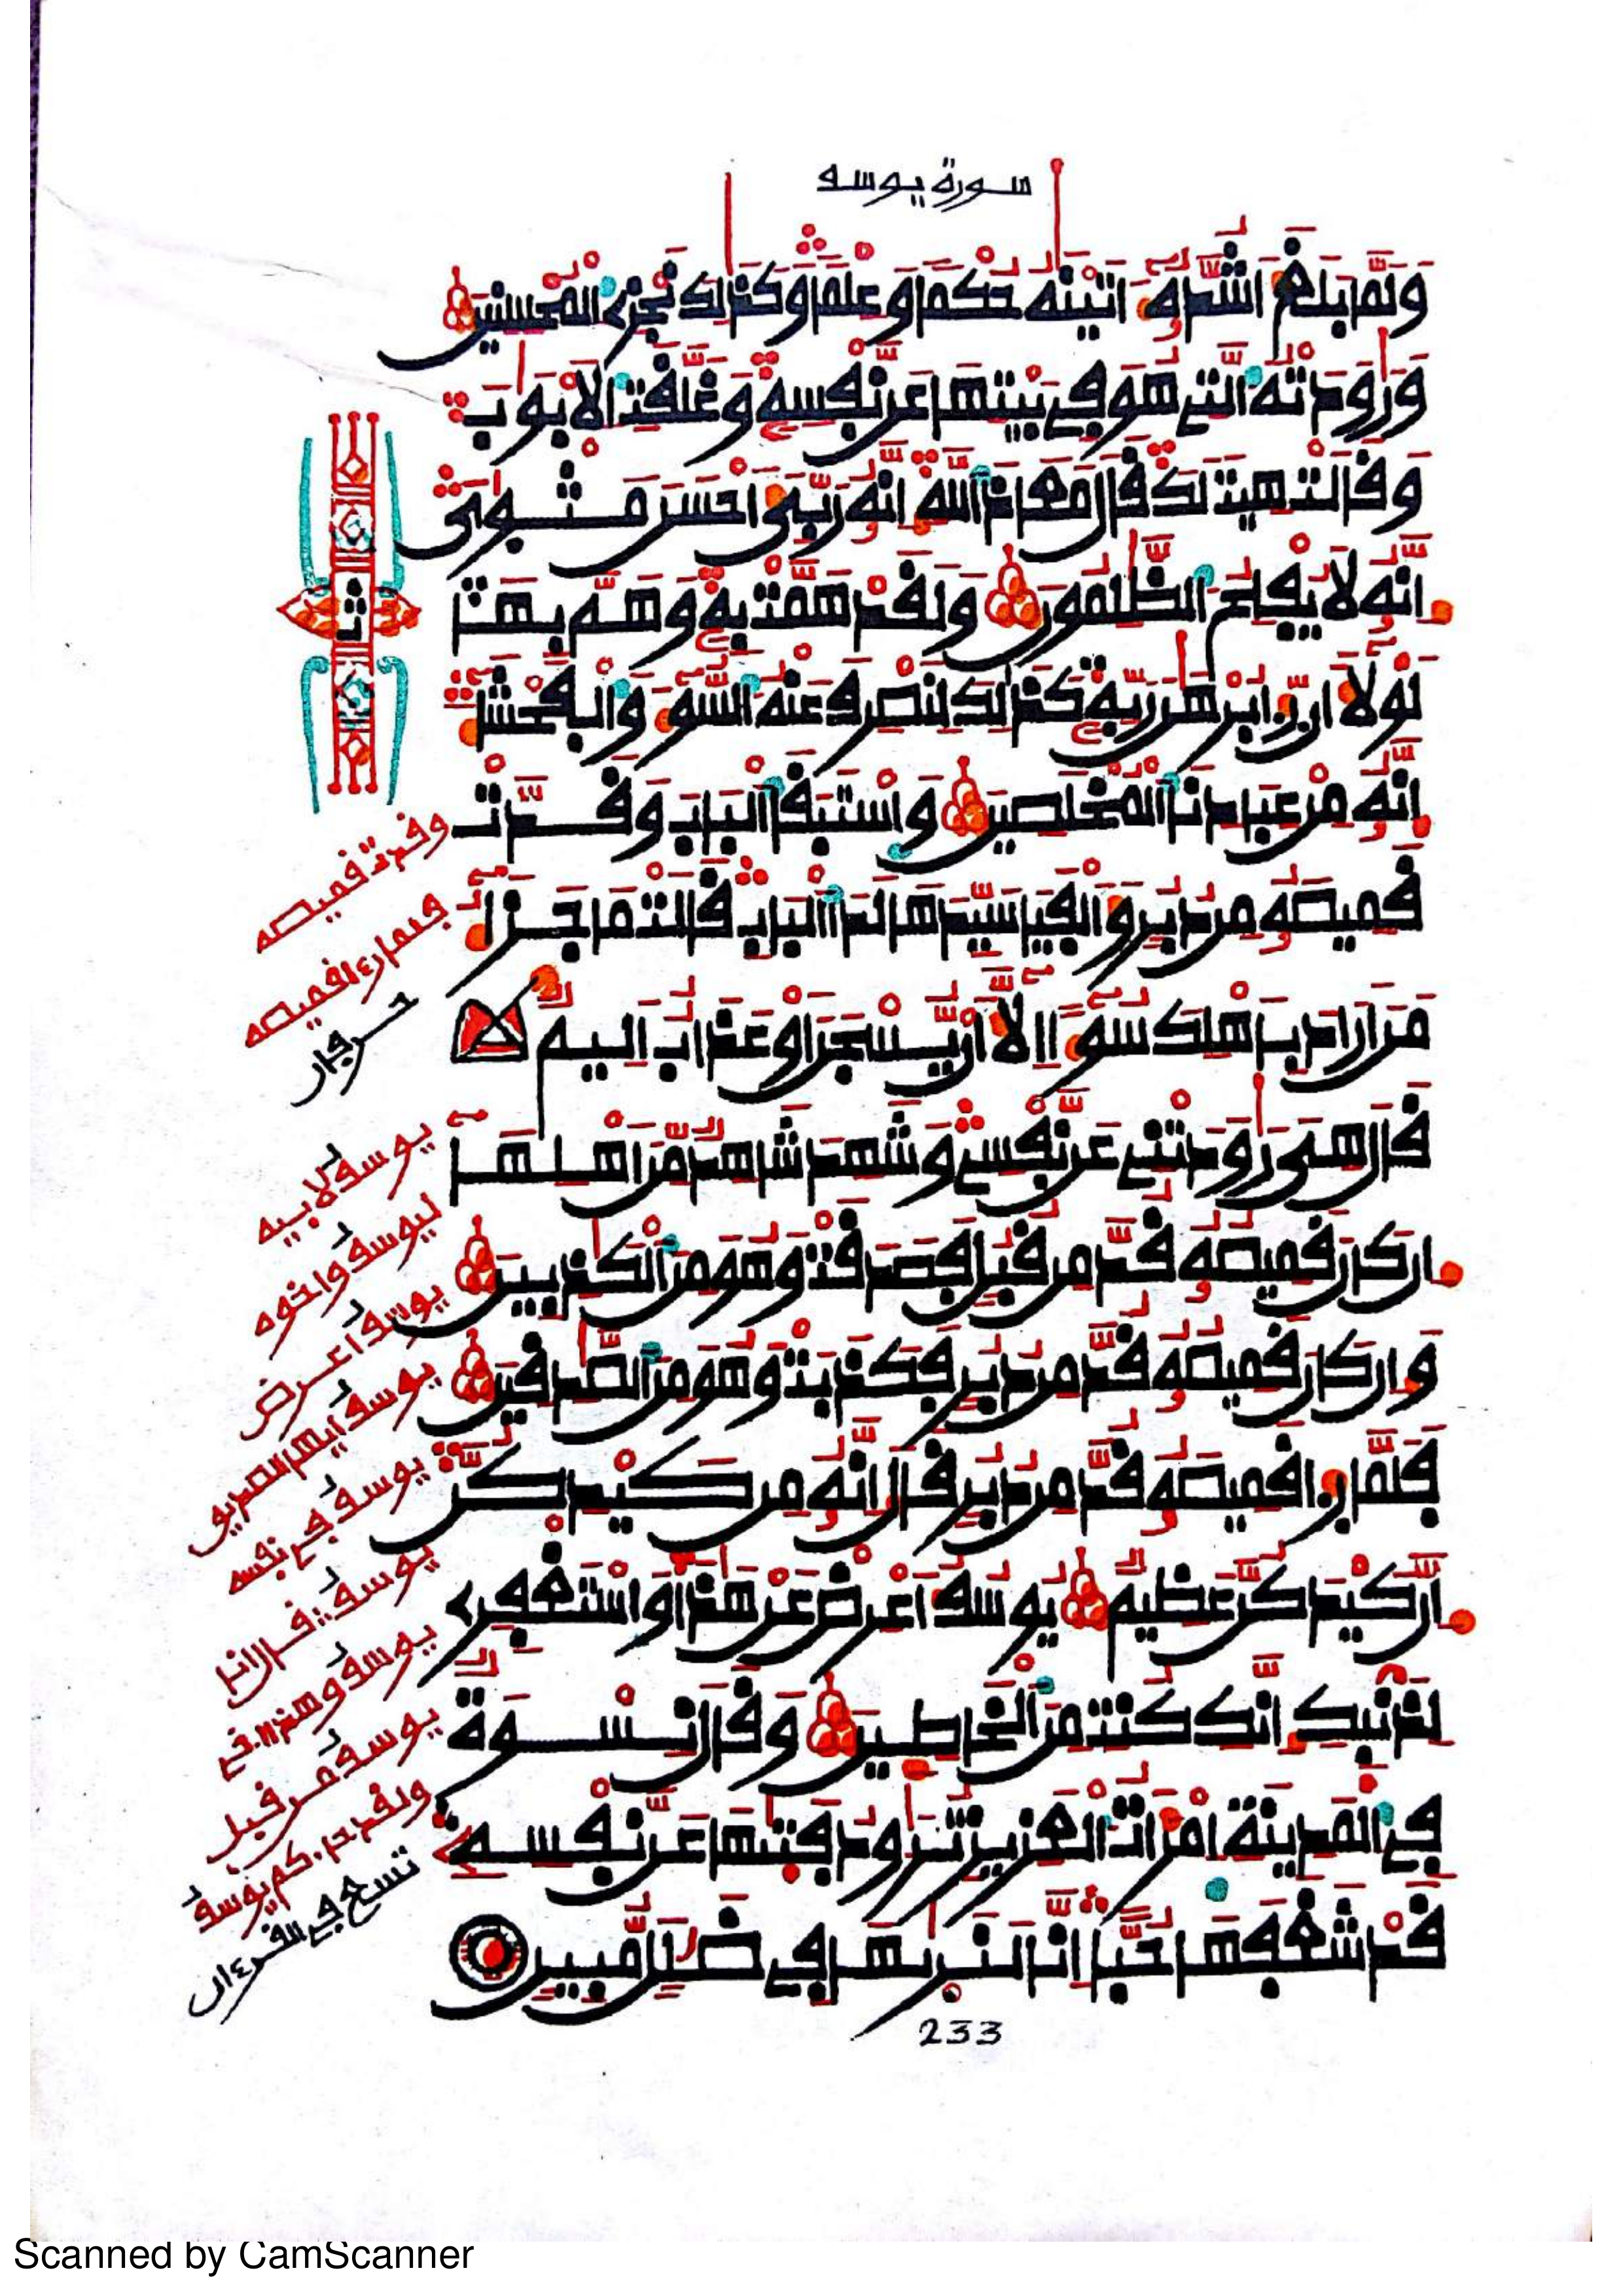 سورة يوسف
وَلَمَّا بَلَغَ أَشُدَّهُ ءَاتَيْنَٰهُ حُكْمًا وَعِلْمًا وَكَذَٰلِكَ نَجْزِي الْمُحْسِنِينَ
وَرَٰوَدَتْهُ الَّتِي هُوَ فِي بَيْتِهَا عَن نَّفْسِهِ وَغَلَّقَتِ الْأَبْوَٰبَ
وَقَالَتْ هِيتَ لَكَ قَالَ مَعَاذَ اللَّهِ إِنَّهُ رَبِّيَ أَحْسَنَ مَثْوَايَ
إِنَّهُ لَا يُفْلِحُ الظَّٰلِمُونَ وَلَقَدْ هَمَّتْ بِهِ وَهَمَّ بِهَا
لَوْلَا أَن رَّءَا بُرْهَٰنَ رَبِّهِ كَذَٰلِكَ لِنَصْرِفَ عَنْهُ السُّوءَ وَالْفَحْشَاءَ
إِنَّهُ مِنْ عِبَادِنَا الْمُخْلَصِينَ وَاسْتَبَقَا الْبَابَ وَقَدَّتْ
قَمِيصَهُ مِن دُبُرٍ وَأَلْفَيَا سَيِّدَهَا لَدَا الْبَابِ قَالَتْ مَا جَزَاءُ
مَنْ أَرَادَ بِأَهْلِكَ سُوءًا إِلَّا أَن يُسْجَنَ أَوْ عَذَابٌ أَلِيمٌ
قَالَ هِيَ رَٰوَدَتْنِي عَن نَّفْسِي وَشَهِدَ شَاهِدٌ مِّنْ أَهْلِهَا
إِن كَانَ قَمِيصُهُ قُدَّ مِن قُبُلٍ فَصَدَقَتْ وَهُوَ مِنَ الْكَٰذِبِينَ
وَإِن كَانَ قَمِيصُهُ قُدَّ مِن دُبُرٍ فَكَذَبَتْ وَهُوَ مِنَ الصَّٰدِقِينَ
فَلَمَّا رَءَا قَمِيصَهُ قُدَّ مِن دُبُرٍ قَالَ إِنَّهُ مِن كَيْدِكُنَّ
إِنَّ كَيْدَكُنَّ عَظِيمٌ يُوسُفُ أَعْرِضْ عَنْ هَٰذَا وَاسْتَغْفِرِي
لِذَنبِكِ إِنَّكِ كُنتِ مِنَ الْخَاطِئِينَ وَقَالَ نِسْوَةٌ
فِي الْمَدِينَةِ امْرَأَتُ الْعَزِيزِ تُرَٰوِدُ فَتَىٰهَا عَن نَّفْسِهِ
قَدْ شَغَفَهَا حُبًّا إِنَّا لَنَرَىٰهَا فِي ضَلَٰلٍ مُّبِينٍ
ثمن
وقدت قميصه
فلما رءا قميصه
حرفان
يوسف لابيه
ليوسف واخوه
يوسف اعرض
يوسف ايها الصديق
يوسف في نفسه
يوسف قال انا
يوسف وهذا اخي
يوسف من قبل
ولقد جاءكم يوسف
تسع في القرءان
233
Scanned by CamScanner